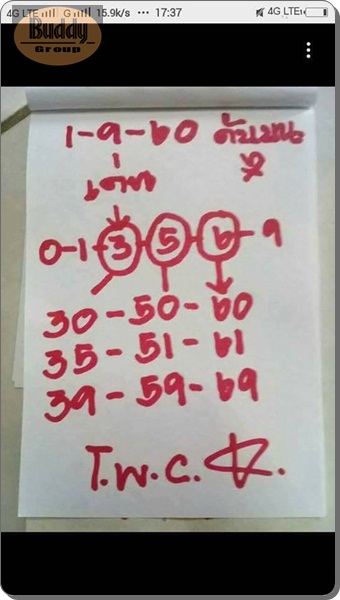 4G LTE G 15.9k/s ... 17:37 4G LTE
Buddy
Group
1-9-60 ดับบน
เด่น
0-1-3-5-6-9
30-50-60
35-51-61
39-59-69
T.W.C.